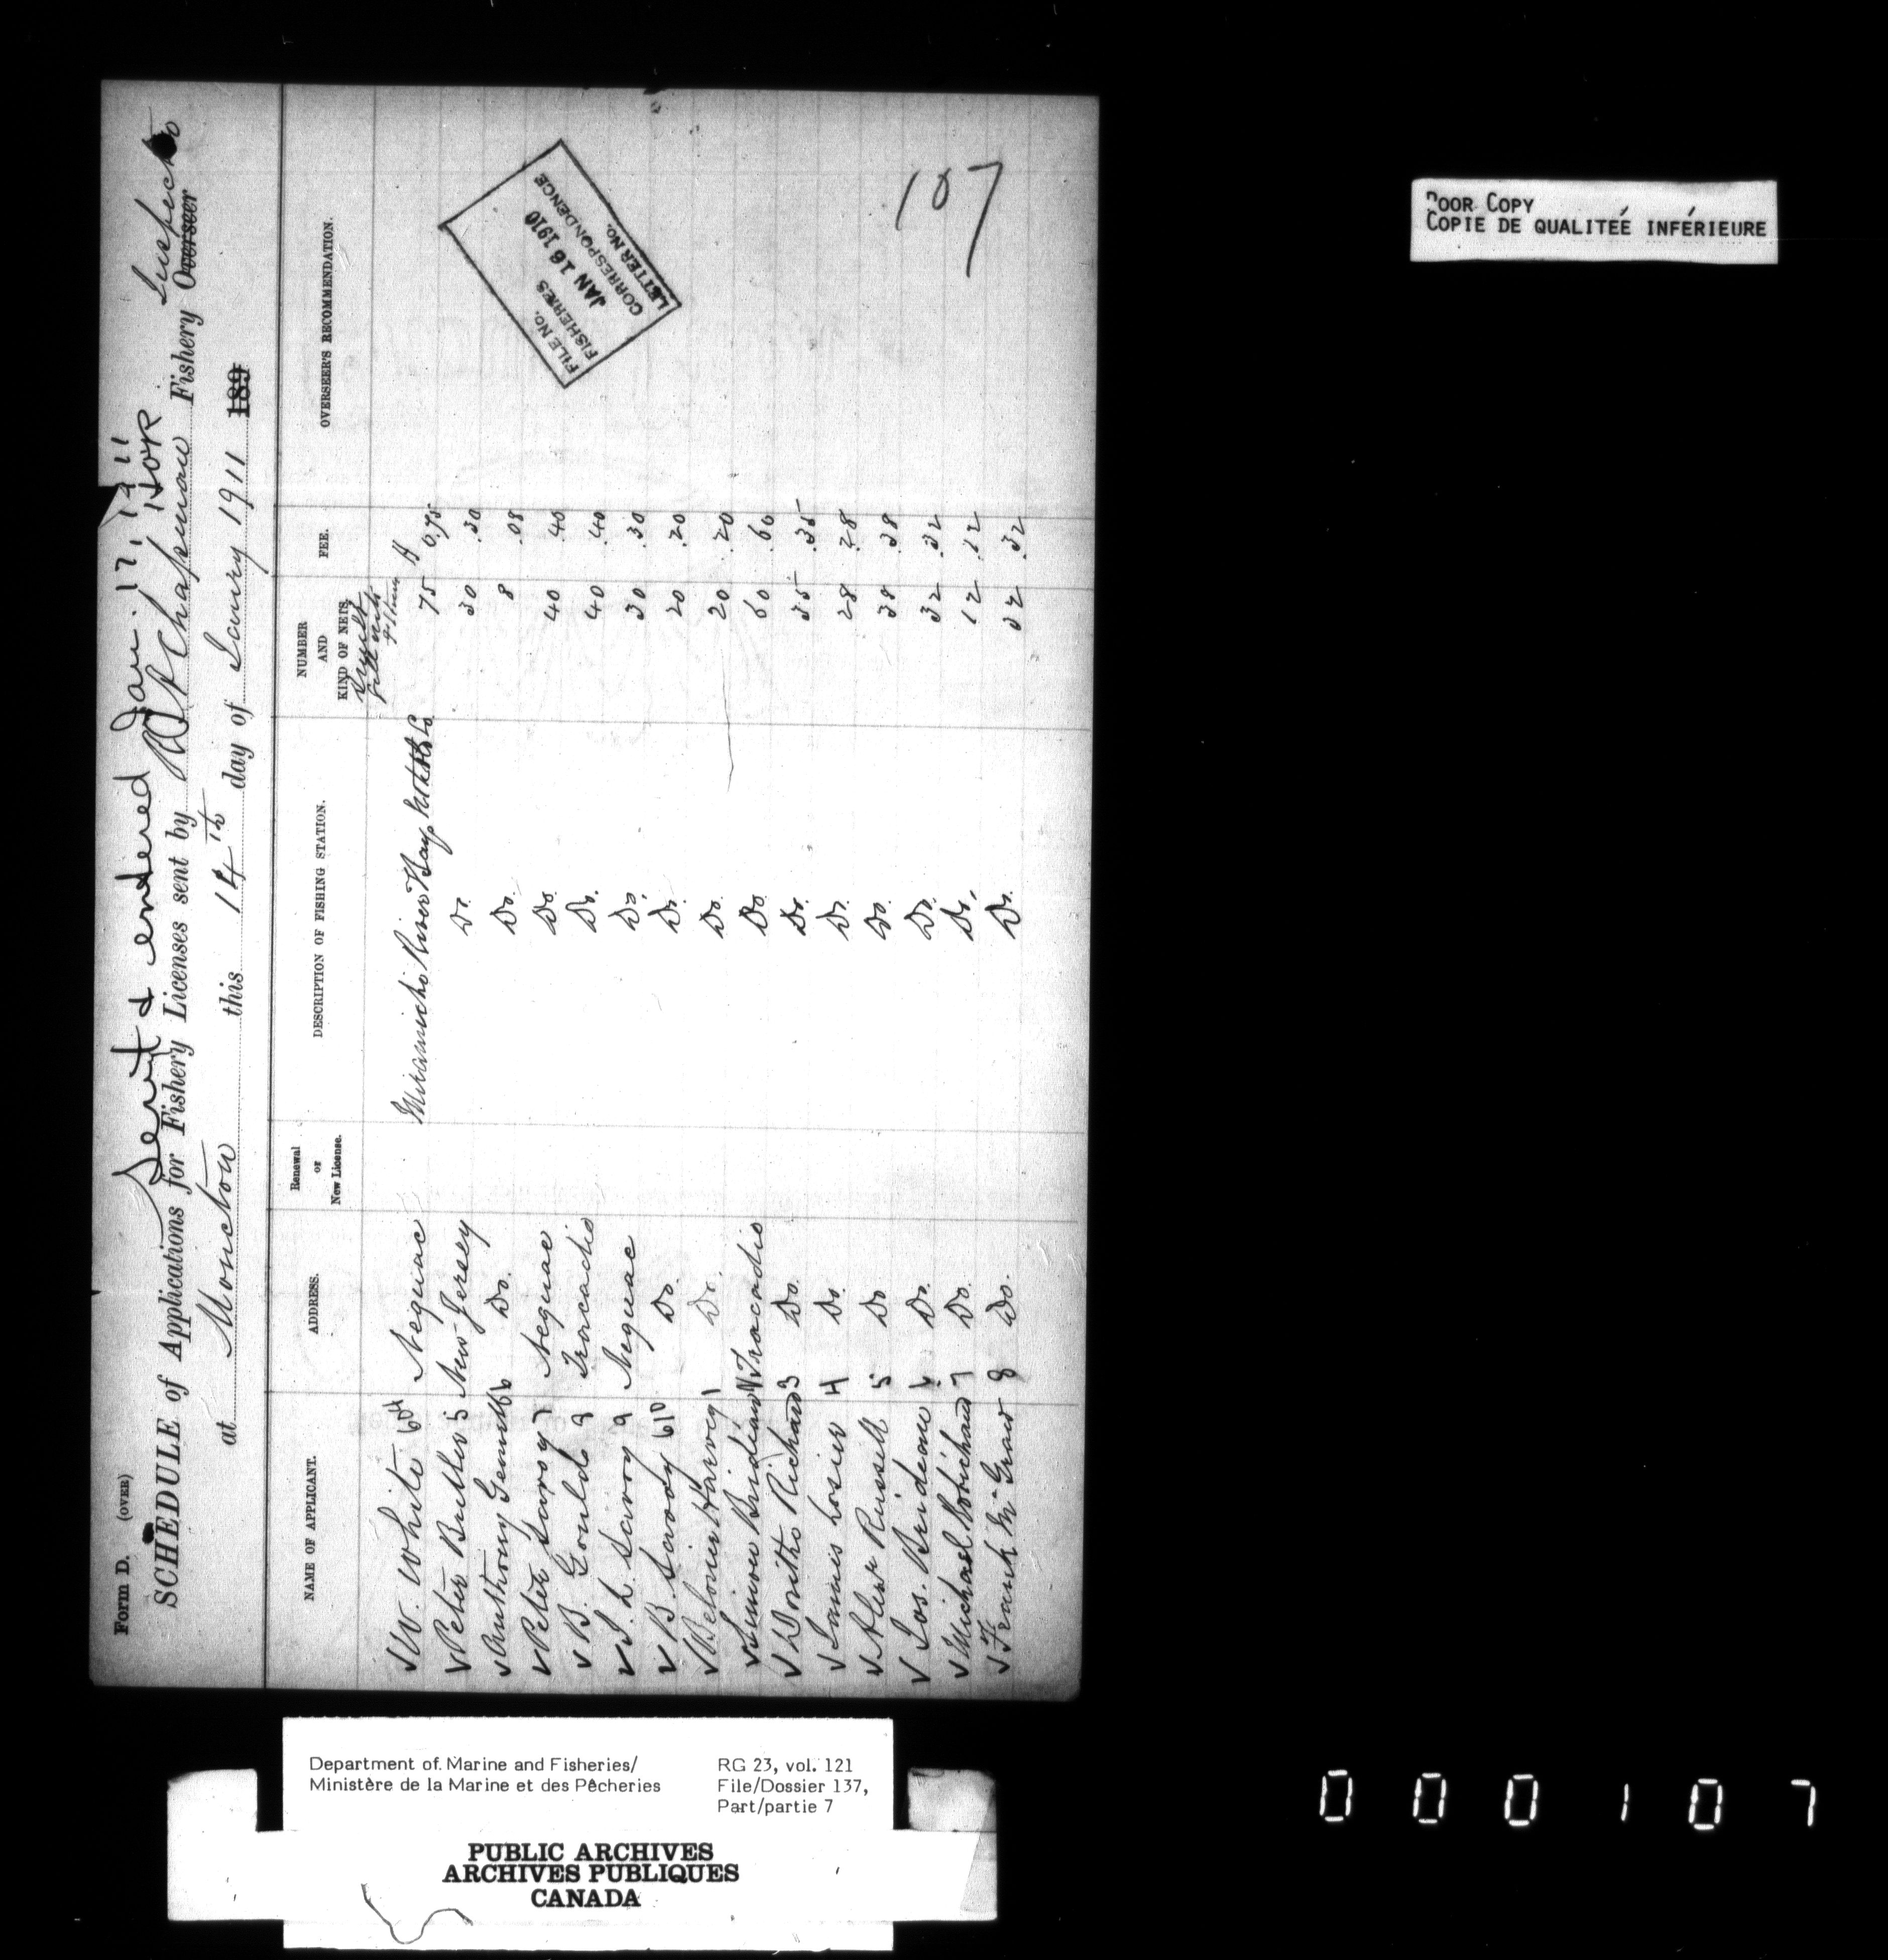 Form D. (OVER)
Sent & entered Jan. 17, 1911
SCHEDULE of Applications for Fishery Licenses sent by R A Chapman Fishery Overseer Inspector
at Moncton this 14th day of Jany 1911 189
NAME OF APPLICANT. ADDRESS. Renewal or New License. DESCRIPTION OF FISHING STATION. NUMBER AND KIND OF NETS. FEE. OVERSEER'S RECOMMENDATION.
✓ W. White 604 Neguac Miramichi River & Bay 75 0.75
✓ Peter Butler 5 New Jersey Do. 30 .30
✓ Anthony 6 Do. Do. 8 .08
✓ Peter Savoy 7 Neguac Do. 40 .40
✓ B. Gould 8 Tracadie Do. 40 .40
✓ J. L. Savoy 9 Neguac Do. 30 .30
✓ B. Savoy 610 Do. Do. 20 .20
✓ Harvey 1 Do. Do. 20 .20
✓ Simon Tracadie Do. 60 .60
✓ Richard 3 Do. Do. 35 .35
✓ James Losier 4 Do. Do. 28 .28
✓ Alex Russell 5 Do Do. 38 .38
✓ Jos. Brideau 6 Do. Do. 32 .32
✓ Michael Robichaud 7 Do. Do. 12 .12
✓ Frank McGraw 8 Do. Do. 32 .32
FILE NO.
FISHERIES
JAN 16 1910
CORRESPONDENCE
LETTER NO.
107
POOR COPY
COPIE DE QUALITÉE INFÉRIEURE
Department of Marine and Fisheries/
Ministère de la Marine et des Pêcheries
RG 23, vol. 121
File/Dossier 137,
Part/partie 7
PUBLIC ARCHIVES
ARCHIVES PUBLIQUES
CANADA
000107